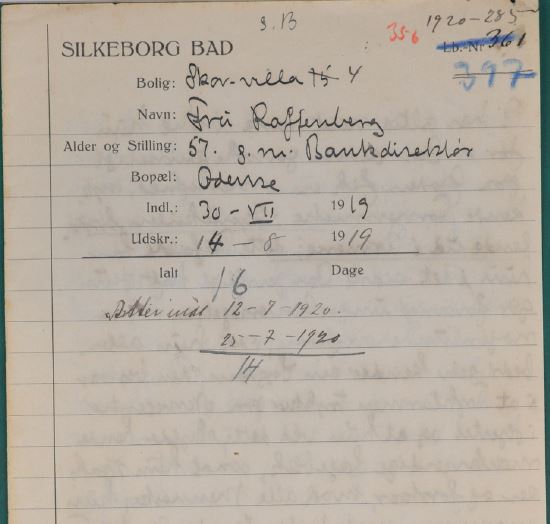 9.13
356 1920-285
SILKEBORG BAD Lb.-Nr 361
397
Bolig: Skov-villa 15 4
Navn: Fru Raffenberg
Alder og Stilling: 57. g. m. Bankdirektør
Bopæl: Odense
Indl.: 30 - VII 1919
Udskr.: 14 - 8 1919
Ialt 16 Dage
Atter indl 12-7-1920.
25-7-1920
14